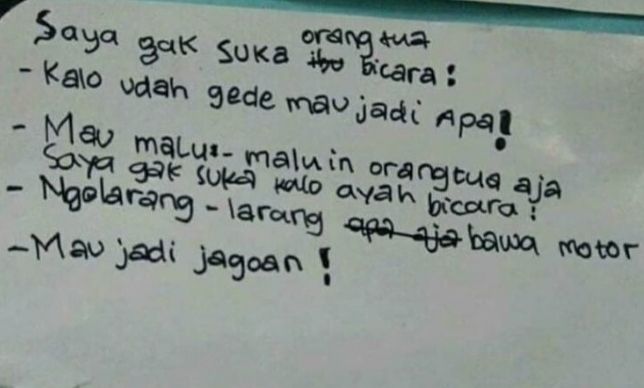 Saya gak suka orangtua bicara :
- Kalo udah gede mau jadi Apa!
- Mau malu-maluin orangtua aja
Saya gak suka kalo ayah bicara :
- Ngelarang-larang apa aja bawa motor
- Mau jadi jagoan !